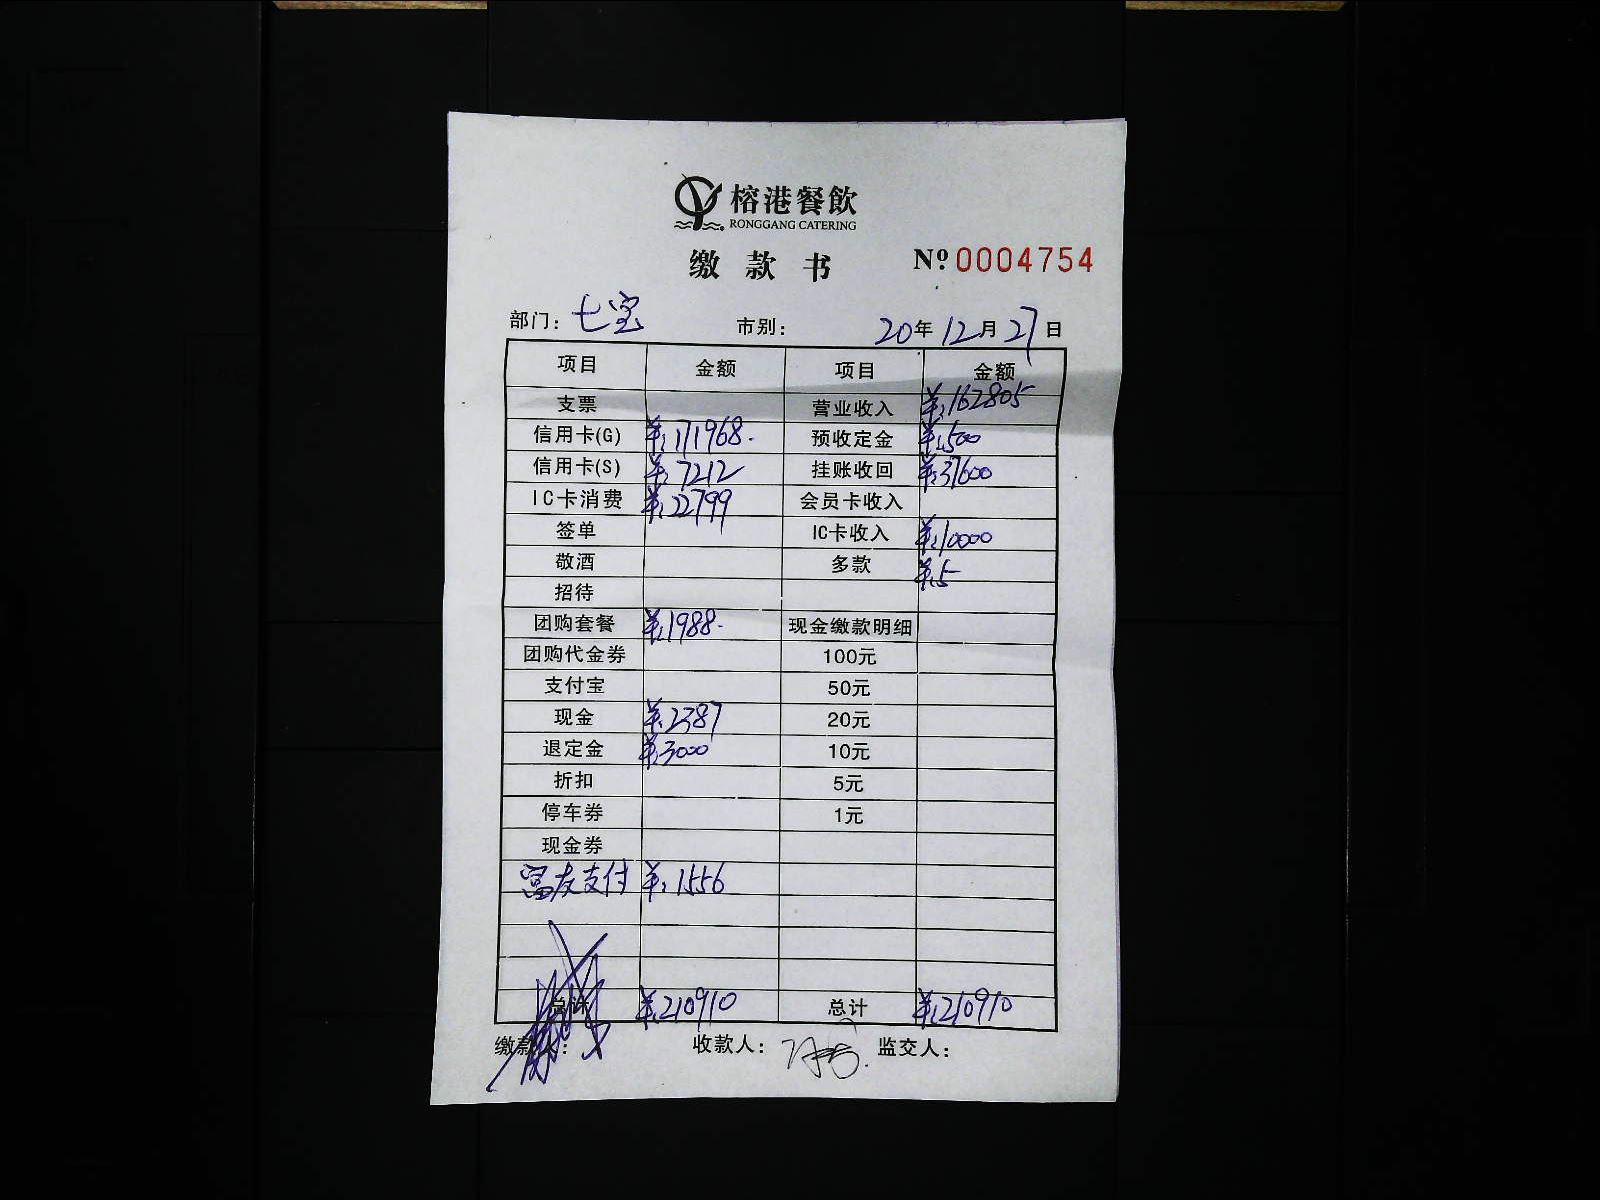 榕港餐飲
RONGGANG CATERING
缴款书 Nº.0004754
部门：七宝 市别： 20年12月27日
项目 金额 项目 金额
支票 营业收入 ¥:162805
信用卡(G) ¥:171968. 预收定金 ¥:500
信用卡(S) ¥:7212 挂账收回 ¥:37600
IC卡消费 ¥:22799 会员卡收入
签单 IC卡收入 ¥:10000
敬酒 多款 ¥:5
招待
团购套餐 ¥:1988. 现金缴款明细
团购代金券 100元
支付宝 50元
现金 ¥:2387 20元
退定金 ¥:3000 10元
折扣 5元
停车券 1元
现金券
富友支付 ¥:1556
总计 ¥:210910 总计 ¥:210910
缴款人： 收款人： 监交人：